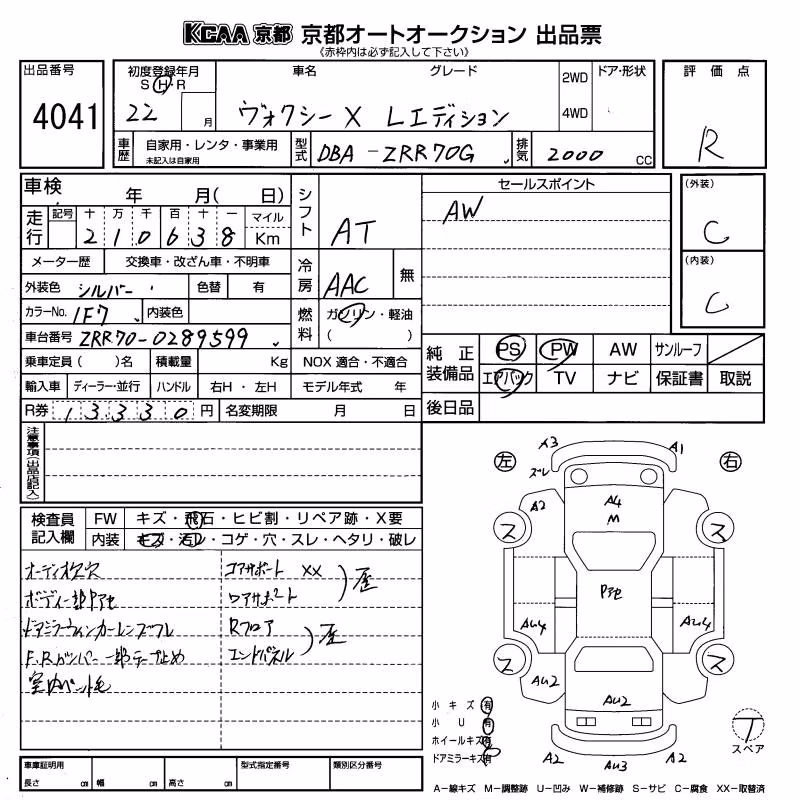 KCAA 京都 京都オートオークション 出品票
《赤枠内は必ず記入して下さい》
出品番号 4041
初度登録年月 S・H・R 22 月
車名 グレード ヴォクシー X Lエディション
2WD 4WD ドア・形状
評価点 R
車歴 自家用・レンタ・事業用 未記入は自家用
型式 DBA-ZRR70G
排気 2000 CC
車検 年 月( 日)
シフト AT
セールスポイント
AW
(外装) C
(内装) C
走行 記号 十 万 千 百 十 一 マイル Km
210638
メーター歴 交換車・改ざん車・不明車
冷房 AAC 無
外装色 シルバー 色替 有
カラーNo. 1F7 内装色
燃料 ガソリン・軽油 ( )
車台番号 ZRR70-0289599
純正装備品 PS PW AW サンルーフ
エアバック TV ナビ 保証書 取説
乗車定員( )名 積載量 Kg NOX 適合・不適合
輸入車 ディーラー・並行 ハンドル 右H・左H モデル年式 年
後日品
R券 13330円 名変期限 月 日
注意事項(出品店記入)
左 右
A3 A1
ズレ
A2
A4
M
ス ス
Pアセ
AU4 AU4
ス ス
AU2 AU2
A2 AU3 A2
検査員記入欄 FW キズ・飛石・ヒビ割・リペア跡・X要
内装 キズ・汚レ・コゲ・穴・スレ・ヘタリ・破レ
オーディオ欠穴 コアサポート XX
ボディ一部Pアセ ロアサポート 歴
ドアミラーウィンカーレンズワレ Rフロア
F.Rバンパー一部テープ止め エンドパネル 歴
室内ペット毛
小キズ 有
小U 有
ホイールキズ 有
ドアミラーキズ 有
T
スペア
車庫証明用 型式指定番号 類別区分番号
長さ cm 幅 cm 高さ cm
A−線キズ M−調整跡 U−凹み W−補修跡 S−サビ C−腐食 XX−取替済